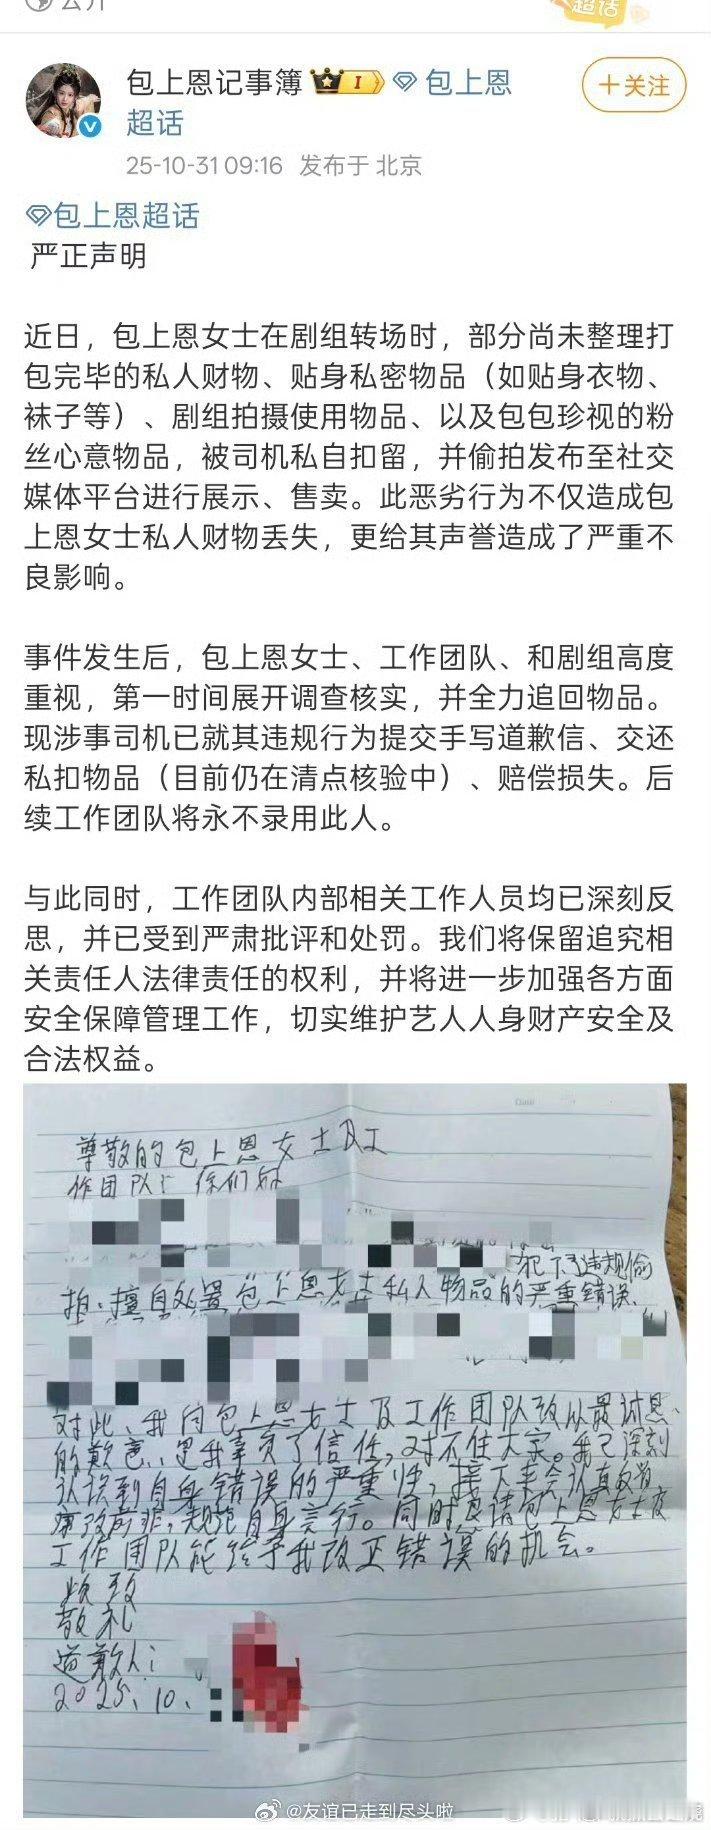 公开
超话
包上恩记事簿 I 包上恩
超话
+关注
25-10-31 09:16 发布于 北京
包上恩超话
严正声明
近日，包上恩女士在剧组转场时，部分尚未整理打
包完毕的私人财物、贴身私密物品（如贴身衣物、
袜子等）、剧组拍摄使用物品、以及包包珍视的粉
丝心意物品，被司机私自扣留，并偷拍发布至社交
媒体平台进行展示、售卖。此恶劣行为不仅造成包
上恩女士私人财物丢失，更给其声誉造成了严重不
良影响。
事件发生后，包上恩女士、工作团队、和剧组高度
重视，第一时间展开调查核实，并全力追回物品。
现涉事司机已就其违规行为提交手写道歉信、交还
私扣物品（目前仍在清点核验中）、赔偿损失。后
续工作团队将永不录用此人。
与此同时，工作团队内部相关工作人员均已深刻反
思，并已受到严肃批评和处罚。我们将保留追究相
关责任人法律责任的权利，并将进一步加强各方面
安全保障管理工作，切实维护艺人人身财产安全及
合法权益。
尊敬的包上恩女士及工
作团队：你们好
犯下违规偷
拍、擅自处置包上恩女士私人物品的严重错误、
对此、我向包上恩女士及工作团队致以最诚恳
的歉意、是我辜负了信任，对不住大家。我已深刻
认识到自身错误的严重性，接下来会认真反省
痛改前非，规范自身言行。同时恳请包上恩女士及
工作团队能给予我改正错误的机会。
此致
敬礼
道歉人：
2025、10、
@友谊已走到尽头啦